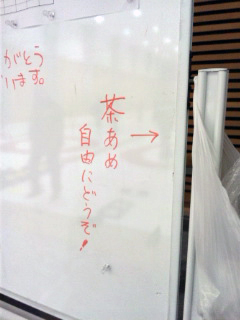 がとう
います。
茶あめ →
自由にどうぞ!